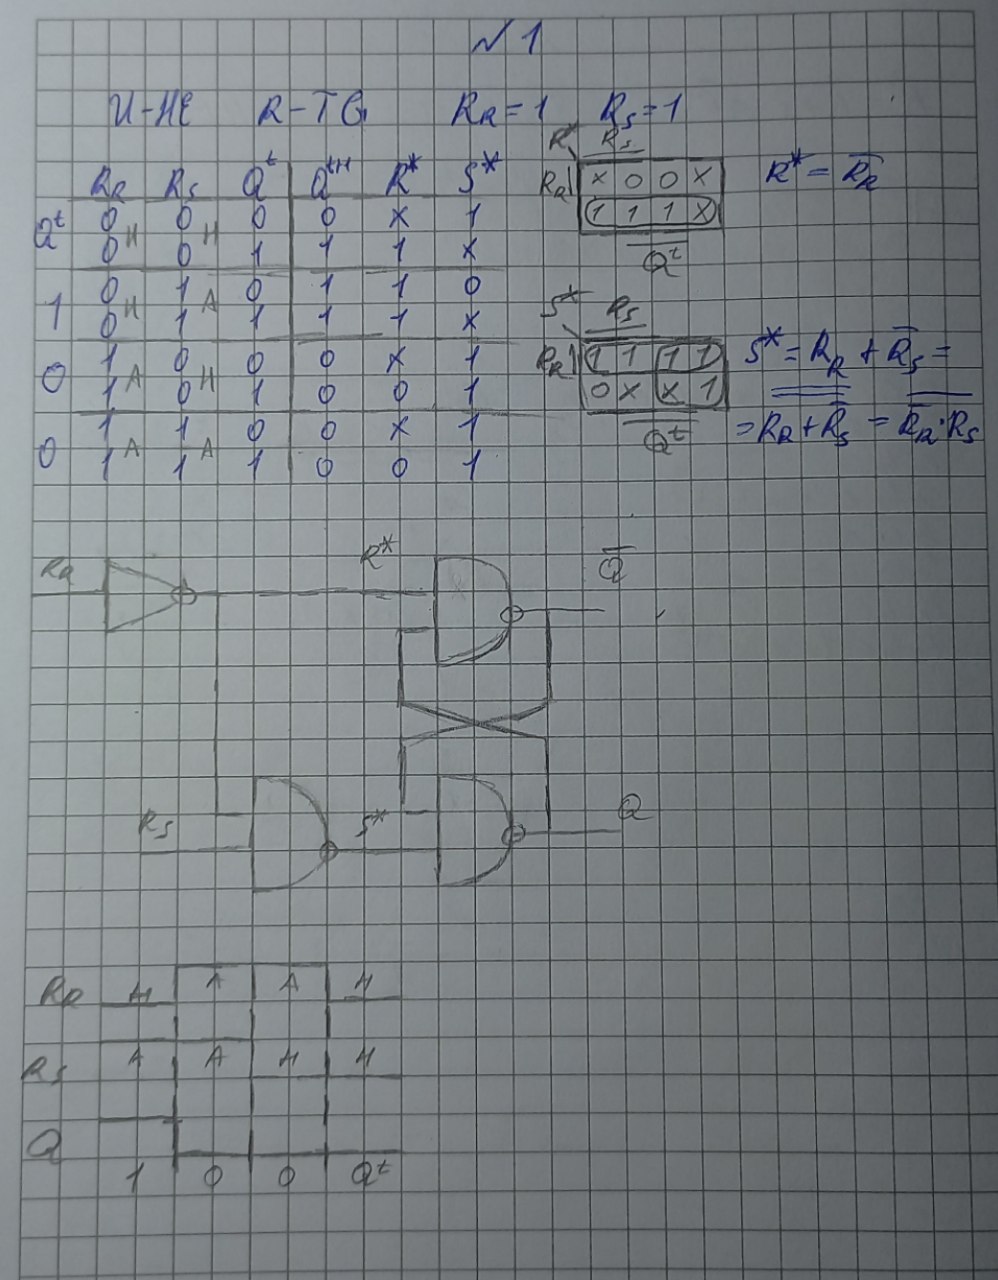 №1
И-НЕ R-TG R_R=1 R_S=1
R_R R_S Q^t Q^{t+1} R* S*
Q^t 0 Н 0 Н 0 0 x 1
0 0 1 1 1 x
1 0 Н 1 А 0 1 1 0
0 1 1 1 1 x
0 1 А 0 Н 0 0 x 1
1 0 1 0 0 1
0 1 А 1 А 0 0 x 1
1 1 1 0 0 1
R* R_S
R_R x 0 0 x
1 1 1 x
Q^t
R* = \overline{R_R}
S* R_S
R_R 1 1 1 1
0 x x 1
Q^t
S* = R_R + \overline{R_S} =
= \overline{\overline{R_R + \overline{R_S}}} = \overline{\overline{R_R} · R_S}
R_R R* \overline{Q}
R_S S* Q
R_R Н А А Н
R_S А А Н Н
Q
1 0 0 Q^t